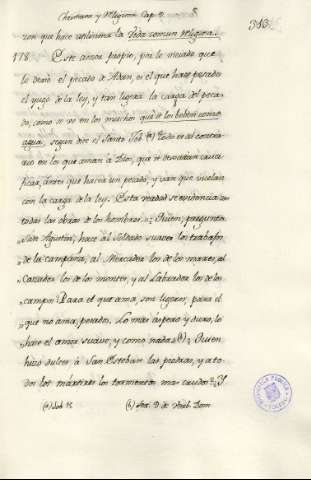 Christiana y Religiosa Cap. 8.
313
con que hace utilisima la Vida comun Religiosa.
178 Este amor propio, por lo viciado que
le dexó el pecado de Adan, es el que hace pesado
el yugo de la ley, y tan ligera la carga del peca-
do, como si no en los muchos que se los beben como
agua, segun dice el Santo Job (a) Todo es al contra-
rio en los que aman á Dios, que se dexarian cruci-
ficar, antes que hacer un pecado, y van que vuelan
con la carga de la ley. Esta verdad se evidencia en
todas las obras de los hombres. ¿Quien, pregunta
San Agustin, hace al Soldado suaves los trabajos
de la campaña, al Mercader los de los mares, al
Cazador los de los montes, y al Labrador los de los
campos? Para el que ama, son ligeros, para el
que no ama, pesados. Lo mas áspero y duro, lo
hace el amor suave, y como nada (b) ¿Quien
hizo dulces á San Esteban las piedras, y a to-
dos los mártires los tormentos mas crudos? Y
(a) Job 15. (b) Ser. 9. de Verb. Dom